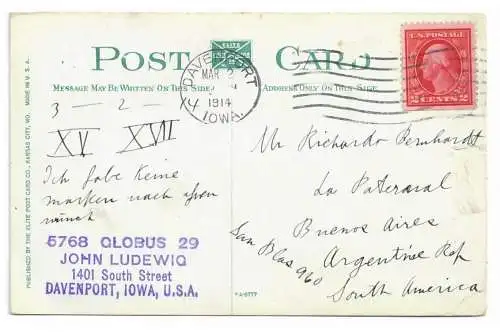 POST CARD
MESSAGE MAY BE WRITTEN ON THIS SIDE
ADDRESS ONLY ON THIS SIDE
DAVENPORT
MAR 2
1914
IOWA.
U.S. POSTAGE
2 CENTS 2
3 – 2 –
XV XVII
Ich habe Keine
marken nach
wunsch
5768 GLOBUS 29
JOHN LUDEWIG
1401 South Street
DAVENPORT, IOWA, U.S.A.
Mr Richardo Bernhardt
La Paternal
Buenos Aires
San Blas 960
Argentine Rep
South America
PUBLISHED BY THE ELITE POST CARD CO., KANSAS CITY, MO. MADE IN U.S.A.